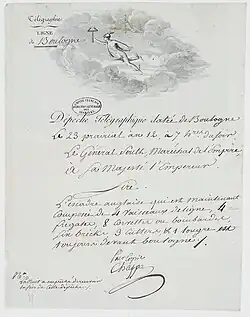 Télégraphie
LIGNE
de Boulogne
Dépêche Télégraphique datée de Boulogne
Le 23 prairial an 12 à 7 h du soir
Le Général Soult, Maréchal de l'Empire
à Sa Majesté l'Empereur
Sire.
L'escadre anglaise qui est maintenant
composée de 4 vaisseaux de ligne, 4
frégates, 8 corvettes ou bombardes,
bricks 3 cutters & 1 lougre est
toujours devant boulogne /.
Pour Copie
Chappe